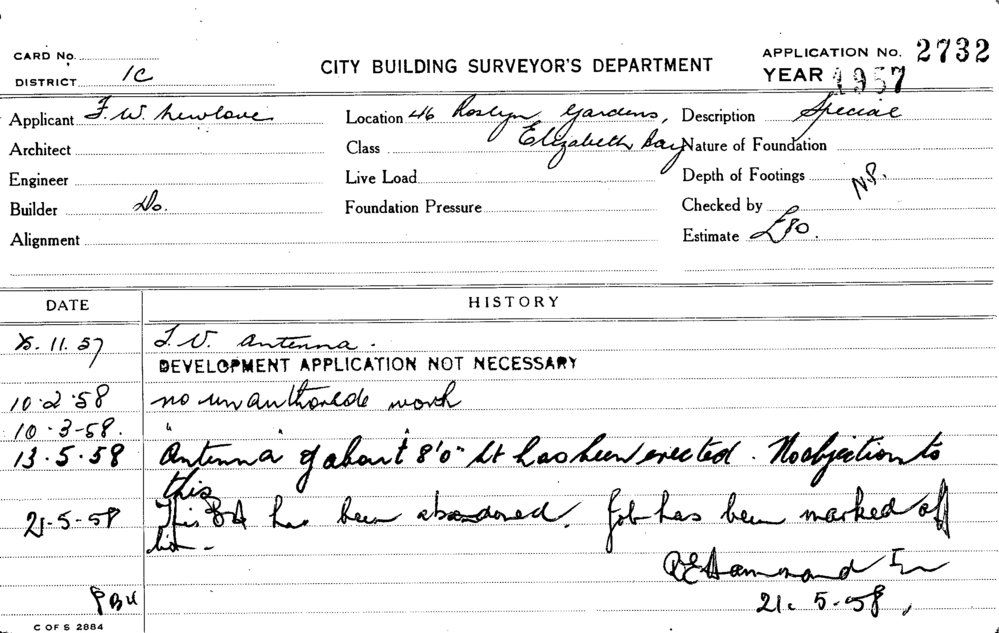 CARD No.
DISTRICT 1C
CITY BUILDING SURVEYOR'S DEPARTMENT
APPLICATION No. 2732
YEAR 1957
Applicant F. W. Newlove
Location 46 Roslyn Gardens,
Elizabeth Bay
Description Special
Architect
Class
Nature of Foundation
Engineer
Live Load
Depth of Footings N.P.
Builder Do.
Foundation Pressure
Checked by
Alignment
Estimate £80.
DATE HISTORY
11.57 T.V. antenna.
DEVELOPMENT APPLICATION NOT NECESSARY
10.2.58 no unauthorede work
10-3-58. " " "
13.5.58 Antenna of about 8'0" ht has been erected. No objection to
this
21-5-58 This BA has been abandoned. Job has been marked off
list.
Hammond
21.5.58.
C OF S 2884